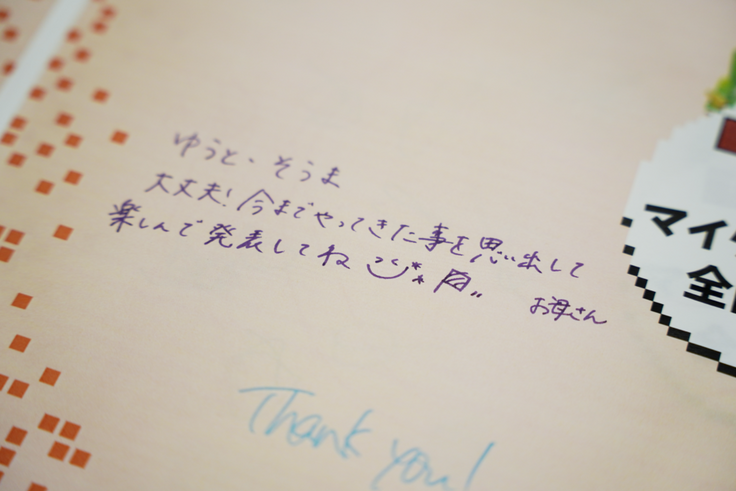 ゆうと、そうま
大丈夫!今までやってきた事を思い出して
楽しんで発表してね
お母さん
Thank you!
マイ
全